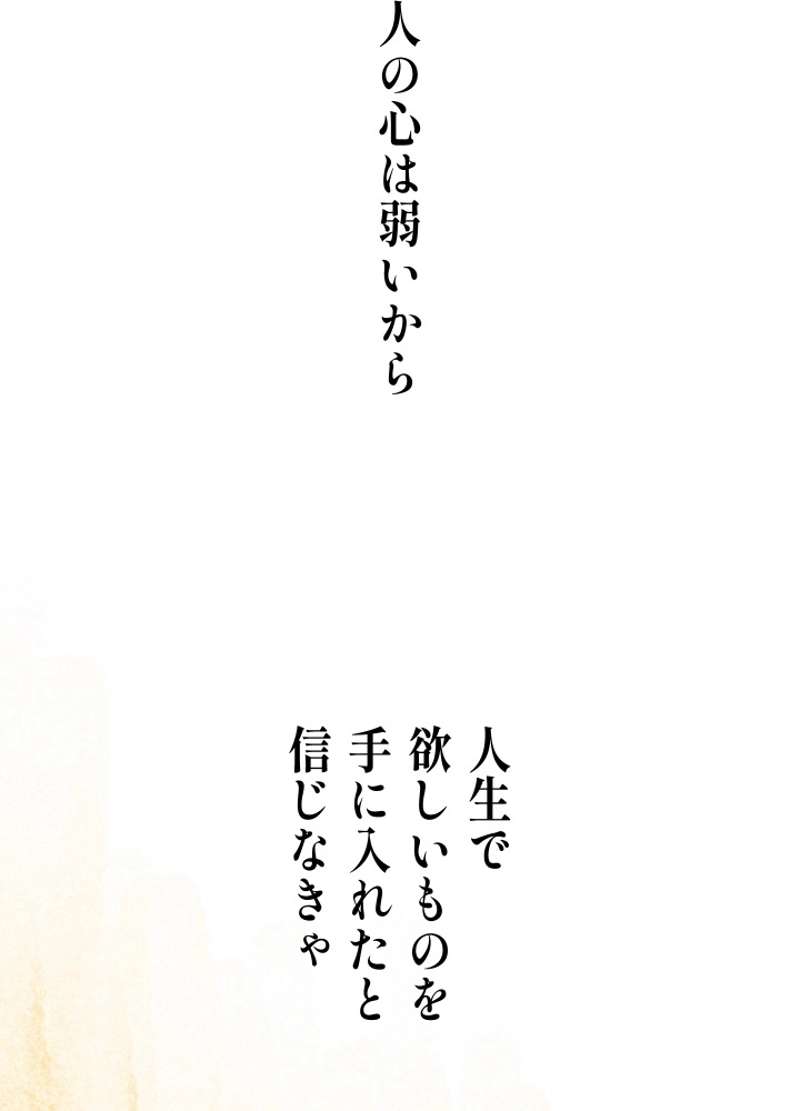 人の心は弱いから
人生で
欲しいものを
手に入れたと
信じなきゃ